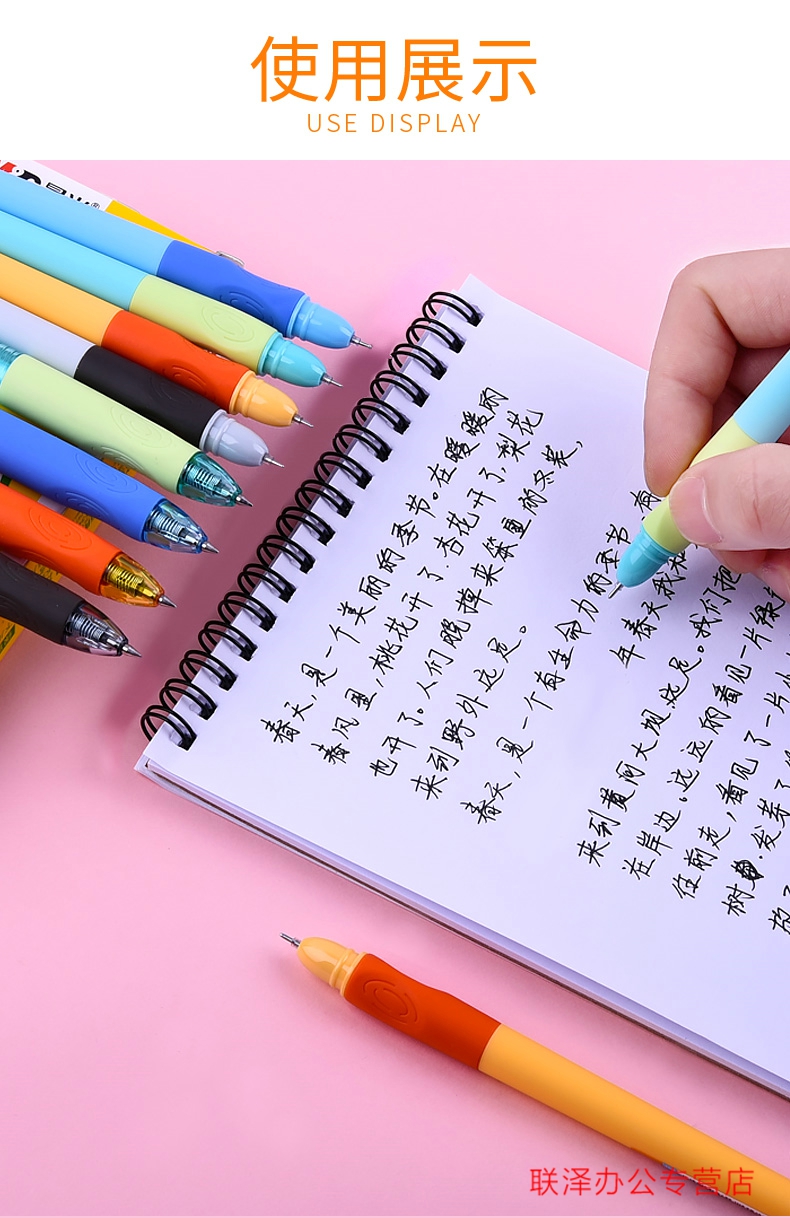 使用展示
USE DISPLAY
晨光®
春天,是一个美丽的季节。在暖暖的
春风里,桃花开了.杏花开了,梨花
也开了。人们脱掉来笨重的冬装,
来到野外远足。
春天,是一个有生命力的季节
年春天我和
来到黄河大坝远足。我们把
在岸边。远远的看见一片绿
往前走,看见了一片小
树.发芽了
联泽办公专营店